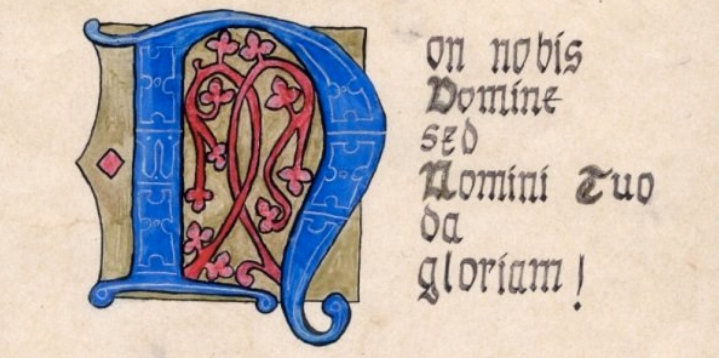 Non nobis
Domine
sed
Nomini Tuo
da
gloriam!